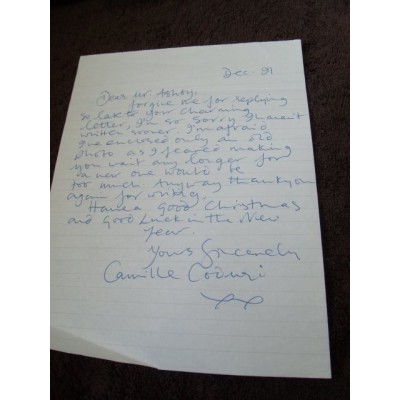 Dec. 91
Dear Mr Ashby,
forgive me for replying
so late to your charming
letter, I'm so sorry I haven't
written sooner. I'm afraid
I've enclosed only an old
photo as I feared making
you wait any longer for
a new one would be
too much. Anyway thankyou
again for writing.
Have a Good Christmas
and Good Luck in the New
Year.
Yours Sincerely
Camille Coduri
xx